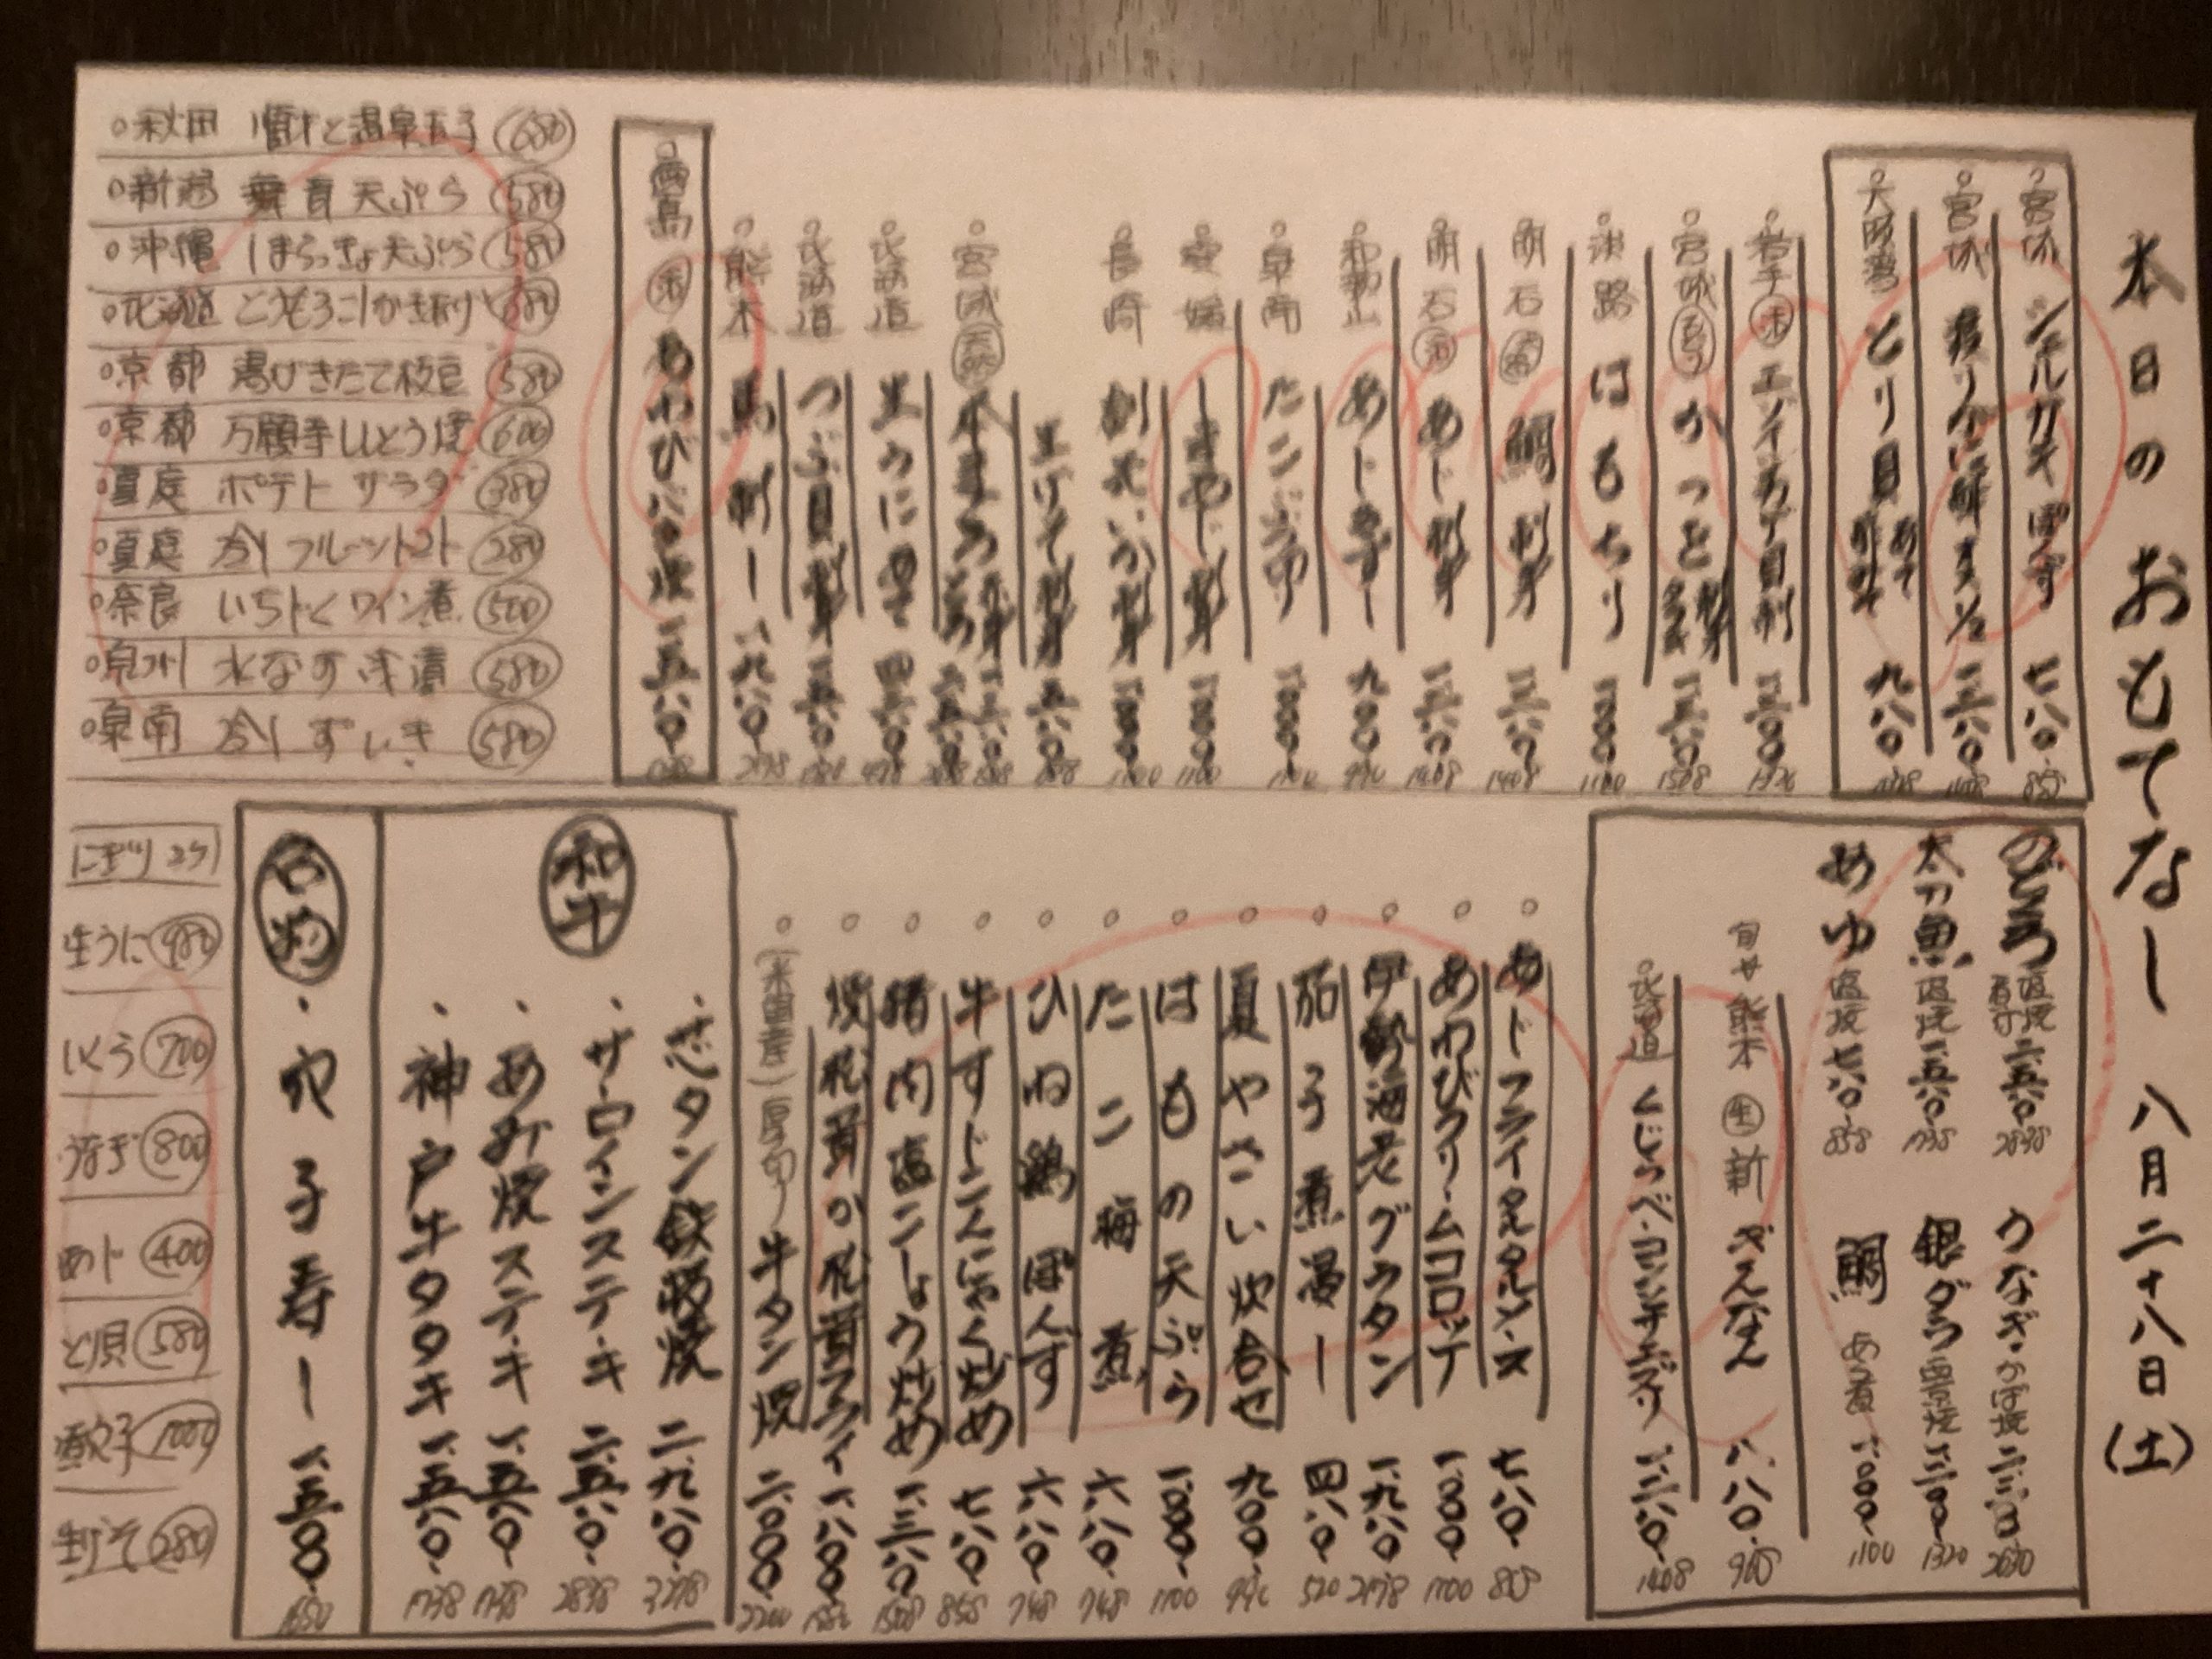 本日のおもてなし 八月二十八日(土)
宮城 シェルカキぽんず 七八〇 858
宮城 渡りがに酢 一二八〇 1408
大阪湾 とり貝 九八〇
岩手 活 エゾイシカゲ貝刺 一二〇〇 1320
宮城 かつを 刺身 たたき 一三八〇 1508
淡路 はもちり 一〇〇〇 1100
明石 鯛刺身 一二八〇 1408
明石 活 あじ刺身 一二八〇 1408
和歌山 あじきずし 九〇〇 990
泉南 たこぶつ切 一〇〇〇 1100
愛媛 しまあじ刺身 一〇〇〇 1100
長崎 剣先いか刺身 一〇〇〇 1100
生げそ刺身 五八〇
宮城 天然 本まぐろ
北海道 生うに
北海道 つぶ貝刺身
熊本 馬刺し 一九八〇 2178
活 あわび
秋田 じゅんさいと温泉玉子 680
新潟 舞茸天ぷら 580
沖縄 しまらっきょ天ぷら 580
北海道 とうもろこしかき揚げ
京都 湯びきたて枝豆 580
京都 万願寺ししとう 600
ポテトサラダ 380
冷しフルーツトマト 280
奈良 いちじくワイン煮 500
泉州 水なす浅漬 580
泉南 冷しずいき 580
のどぐろ 塩焼 煮付 二五八〇 2838
うなぎ・かば焼 二三〇〇 2530
太刀魚 塩焼 一五八〇 1738
銀ダラ 西京焼 一二〇〇 1320
あゆ 塩焼 七八〇 858
鯛 あら煮 一〇〇〇 1100
旬 熊本 生 新 ぎんなん 八八〇 968
北海道 くじらベーコン 一二八〇 1408
あじフライタルタルソース 七八〇 858
あわびクリームコロッケ 一〇〇〇 1100
伊勢海老グラタン 一九八〇 2178
茄子煮浸し 四八〇 520
夏やさい炊合せ 九〇〇 990
はもの天ぷら 一〇〇〇 1100
たこ梅煮 六八〇 748
ひね鶏ぽんず 六八〇 748
牛すじこんにゃく炒め 七八〇 858
猪肉塩こしょう炒め 一三八〇 1508
焼松茸か松茸フライ 一八〇〇
(米国産)厚切り牛タン焼 二〇〇〇 2200
和牛
・芯タン鉄板焼 二九八〇 3278
・サーロインステーキ 二五八〇 2838
・あみ焼ステーキ 一五八〇 1738
・神戸牛タタキ 一五八〇 1738
名物
・穴子寿し 一五〇〇 1650
にぎり 2ケ
生うに 980
いくら 700
うなぎ 800
あじ 400
とり貝 580
煮穴子 1000
生げそ 280